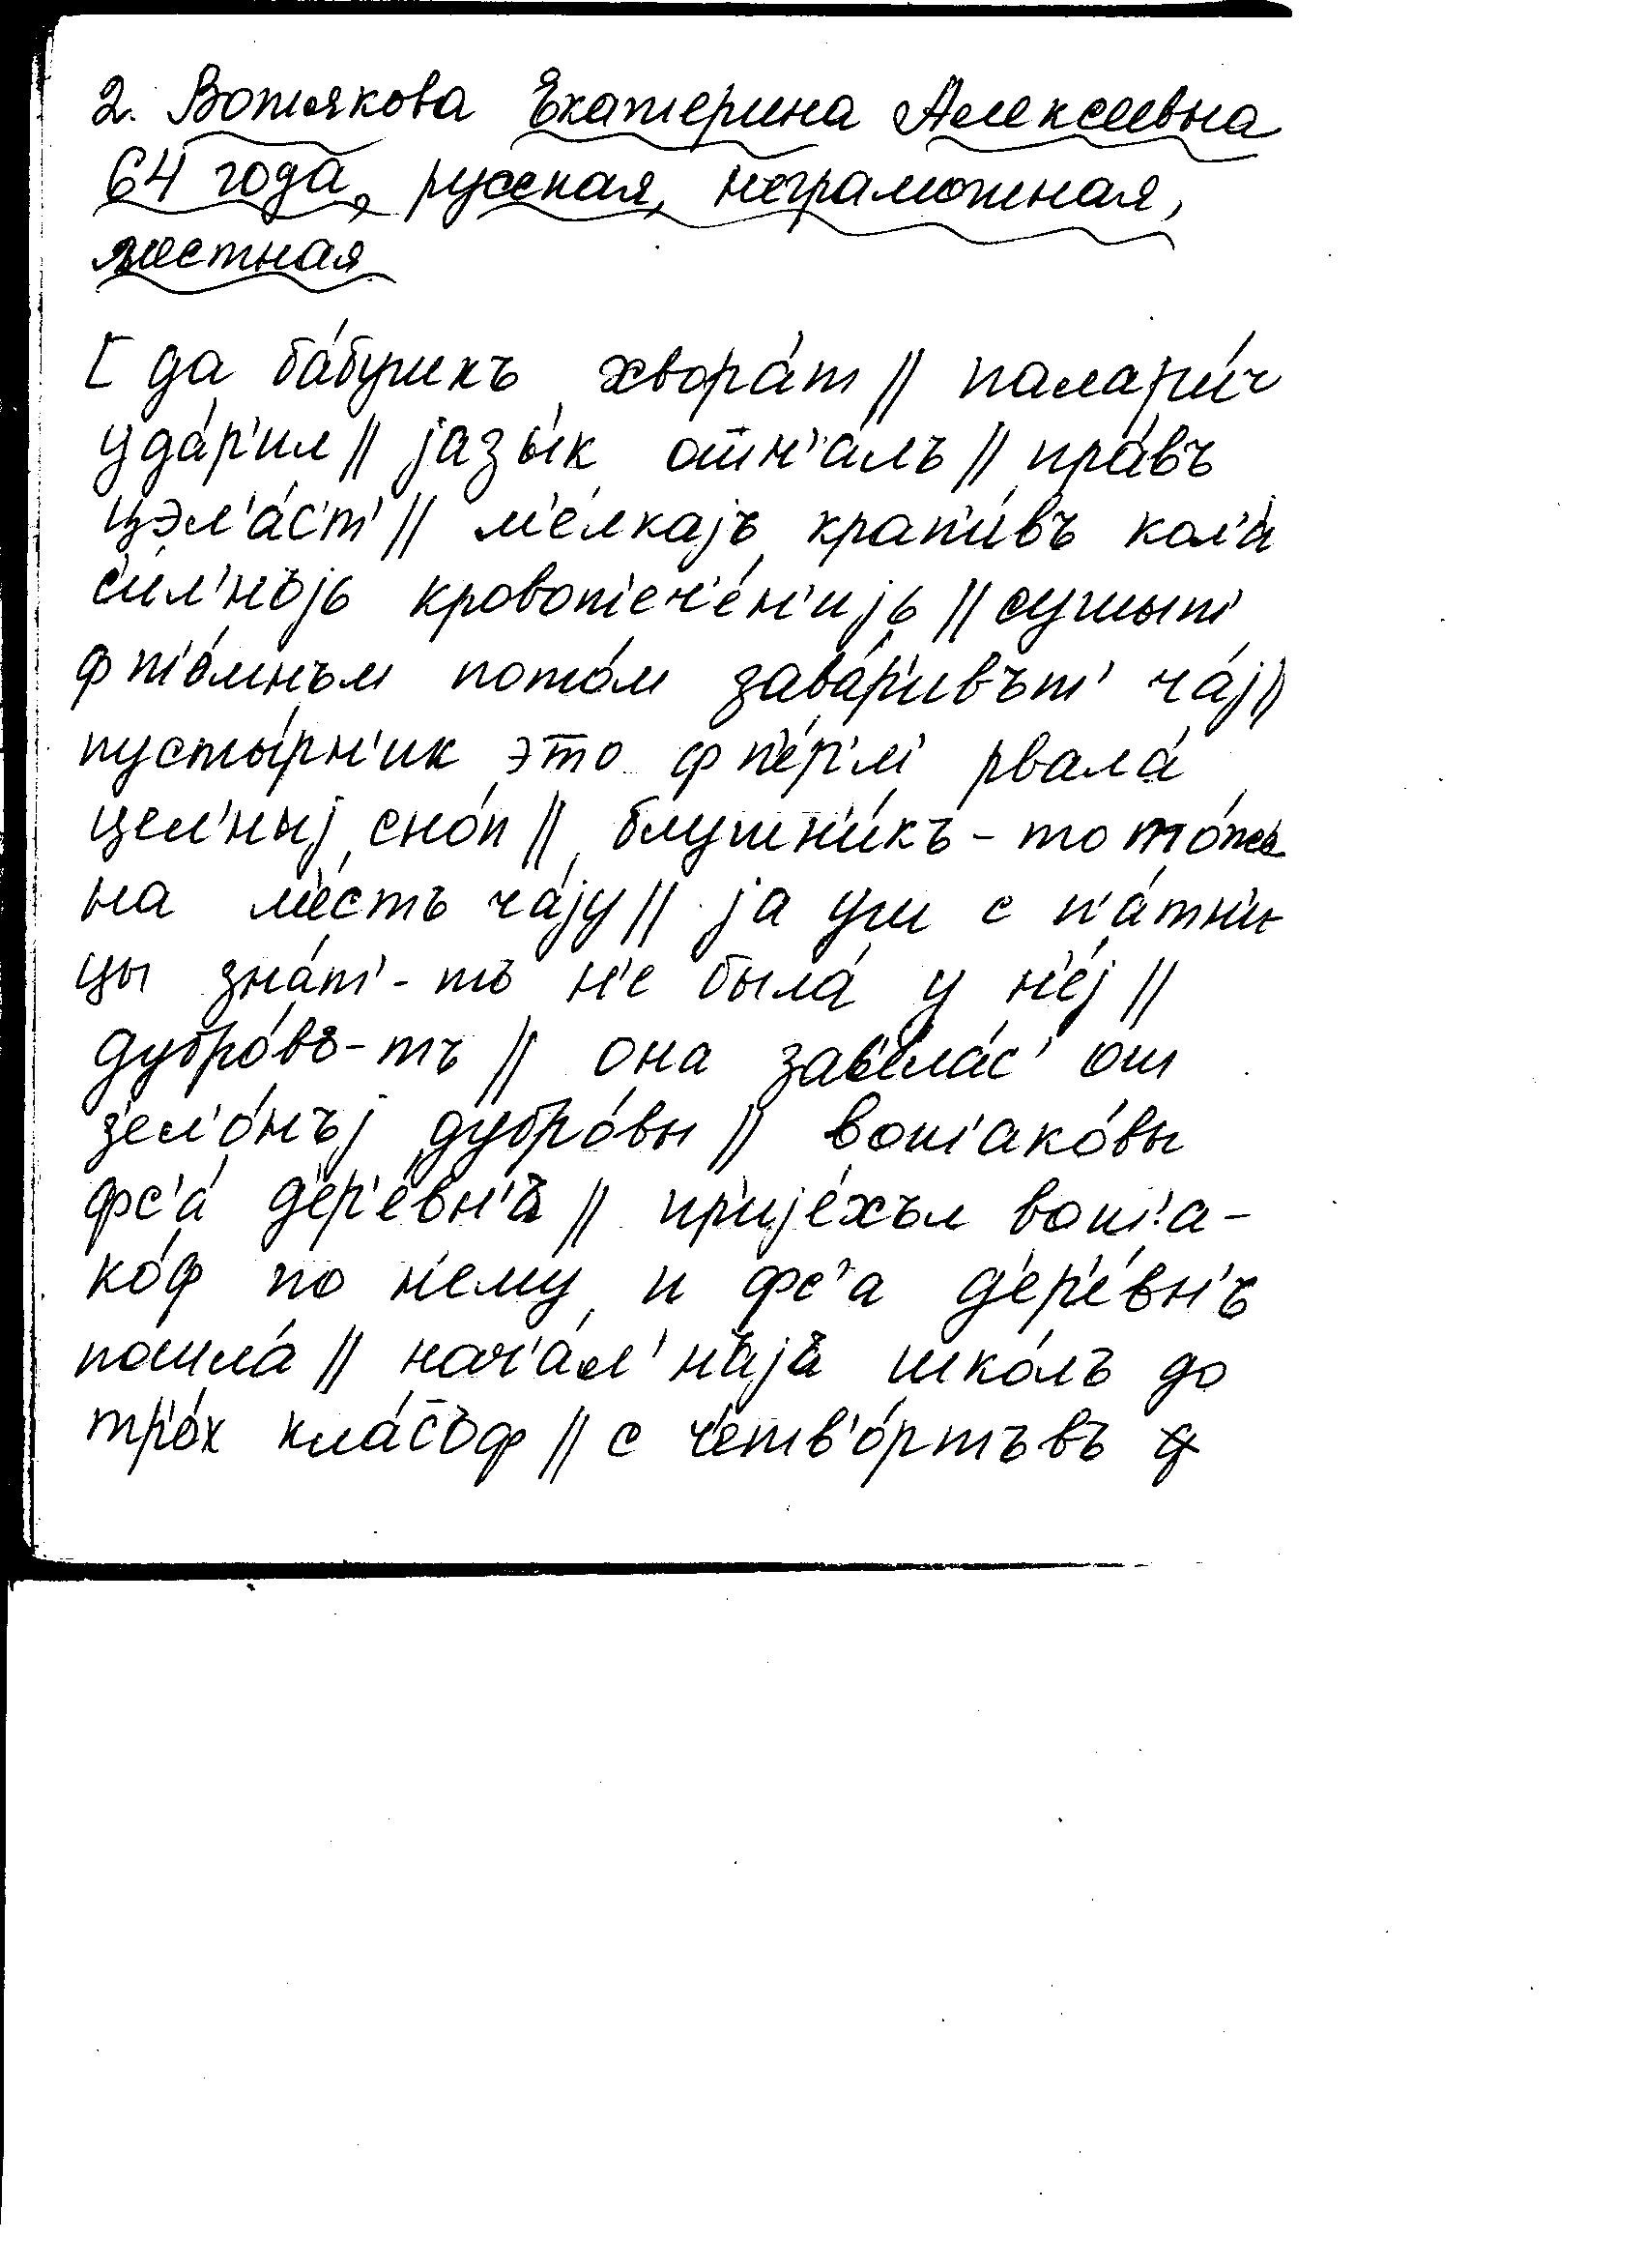 2. Вотякова Екатерина Алексеевна
64 года, русская, неграмотная,
местная
[да ба́бушкъ хвора́т // палари́ч
уда́р'ил // jазы́к отн'а́лъ // пра́въ
цэл'а́с'т' // м'е́лкаjъ крап'и́въ кол'и
с'и́л'нъjь кровот'еч'е́н'иjь // сушыт'
ф т'о́мнъм пото́м зава́р'ивът' ча́j//
пусты́рн'ик это ф п'е́р'м' рвала́
цел'ныj сно́п // блушн'и́къ - то то́жь
на м'е́стъ ча́jу // jа уш с п'а́тн'и-
цы зна́т' - тъ н'е была́ у н'е́j //
дубро́въ-тъ // она зав'ела́с' от
з'ел'о́нъj дубро́вы // вот'ако́вы
фс'а́ д'ер'е́вн'ъ // пр'иjе́хъл вот'а-
ко́ф по н'ему и фс'а д'ер'е́вн'ъ
пошла́ // нач'а́л'нъjъ шко́лъ до
тр'о́х кла́съф // с ч'етв'о́ртъвъ ф